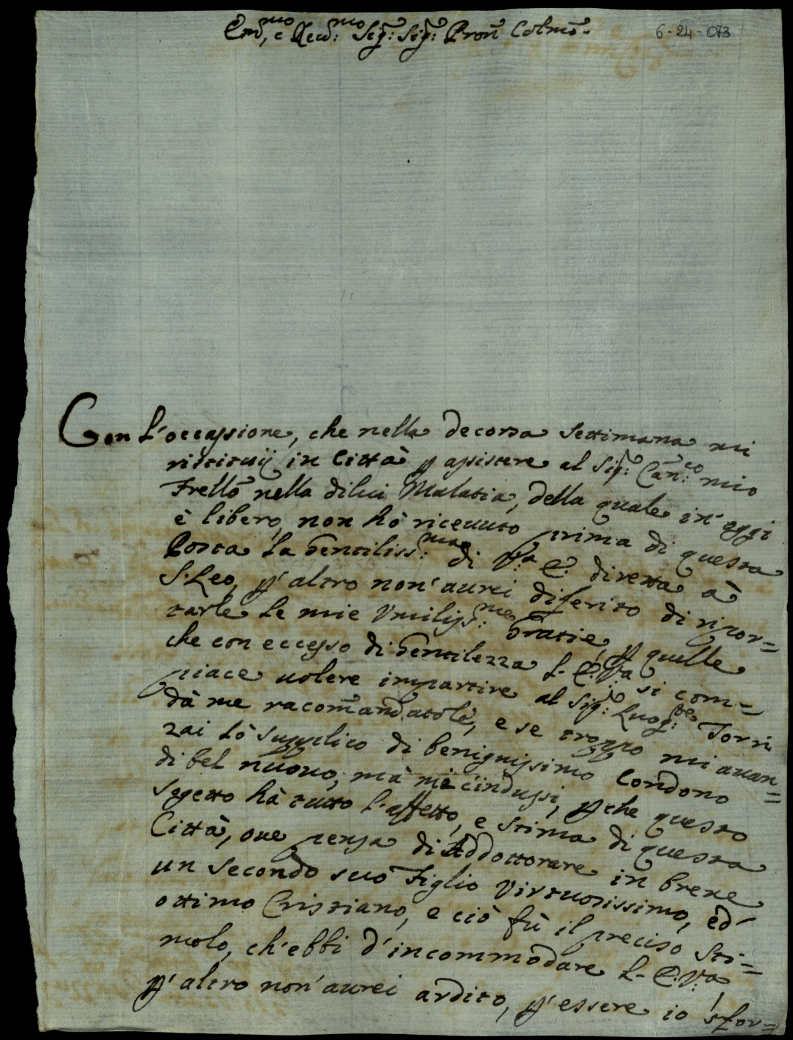 Em̃, e Reud:mo Sig: Sig: Pron̄ Colmo:
6-24-073
Con l'occassione, che nella decorsa Settimana mi
ristituij in Città p assistere al Sig: Can:co mio
Frello nella di lui Malatia, della quale in oggi
è libero, non hò riceuuto prima di questa
Posta la Gentiliss:ma di V:a E: diretta à
S. Leo, p altro non' aurei diferito di ripor=
tarle le mie Vmiliss:me Gratie, p quelle
che con eccesso di Gentilezza l. E. Va si com=
piace uolere impartire al Sig: Luog:te Torri
dà me racom̃andatole, e se troppo mi auan=
zai Lò supplico di benignissimo Condono
di bel nuouo, mà mè c'indussi, pche questo
Segetto hà tutto l'affetto, e stima di questa
Città, oue pensa di Addottorare in breue
un Secondo suo Figlio Virtuosissimo, ed'
ottimo Cristiano, e ciò fù il preciso sti=
molo, ch'ebbi d'incommodare l. E. Va,
p' altro non' aurei ardito, p' essere io sfor=